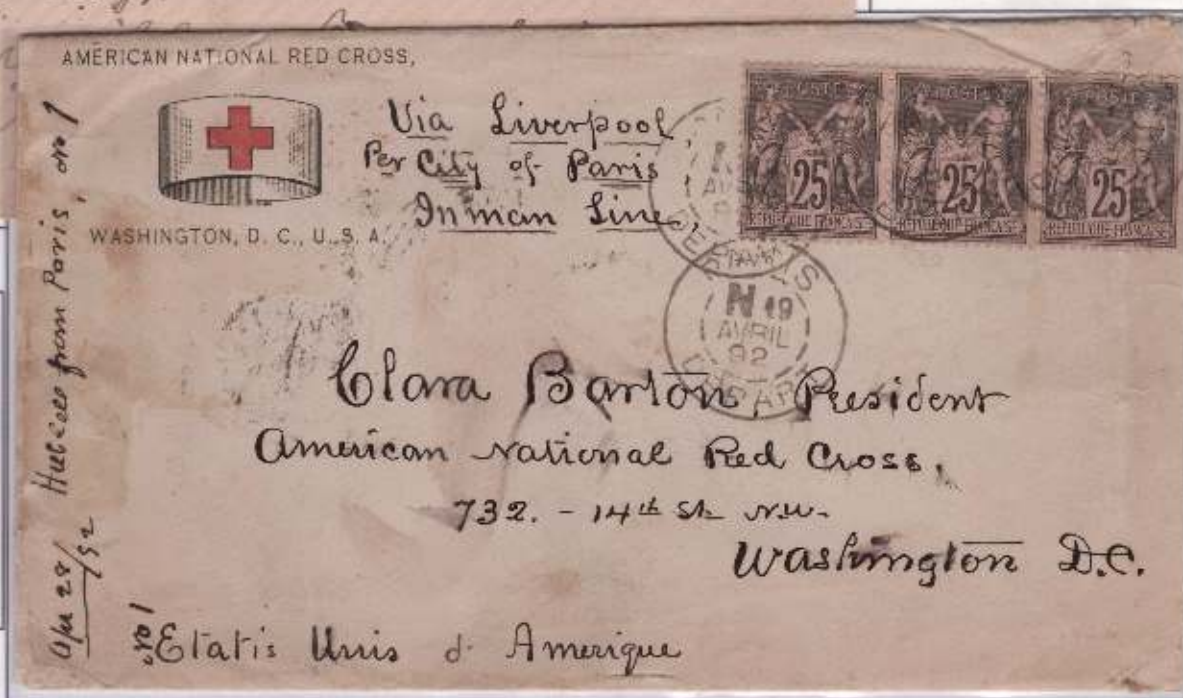 AMERICAN NATIONAL RED CROSS,
WASHINGTON, D. C., U. S. A.
Via Liverpool,
Per City of Paris
Inman Line,
POSTES
25
REPUBLIQUE FRANÇAISE
POSTES
25
REPUBLIQUE FRANÇAISE
POSTES
25
REPUBLIQUE FRANÇAISE
AVRIL
19
AVRIL
92
DEPART
Clara Barton, President
American National Red Cross,
732. - 14th St. N.W.
Washington D.C.
Etatis Unis d Amerique
No 1
Apr 28/92 Hubbell from Paris, No 1